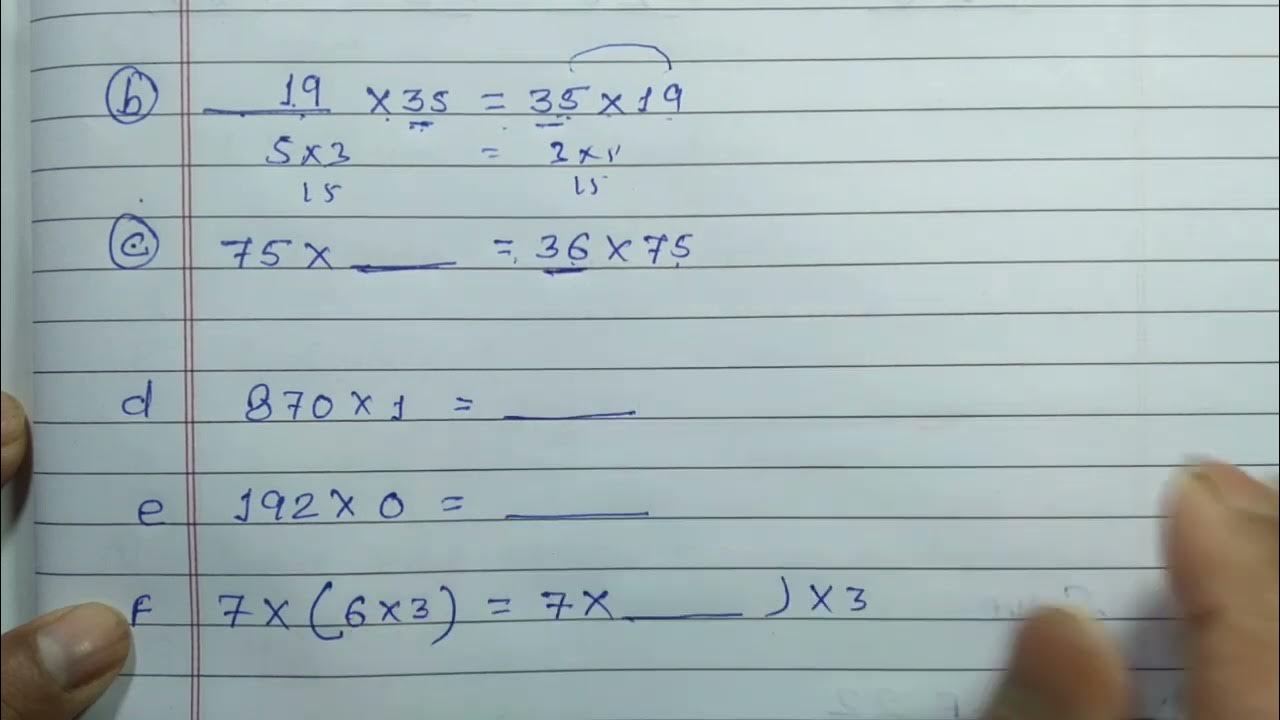 b 19 × 35 = 35 × 19
5 × 3 = 3 × 5
15 15
c 75 × ___ = 36 × 75
d 870 × 1 = ___
e 192 × 0 = ___
F 7 × (6 × 3) = 7 × ___ ) × 3